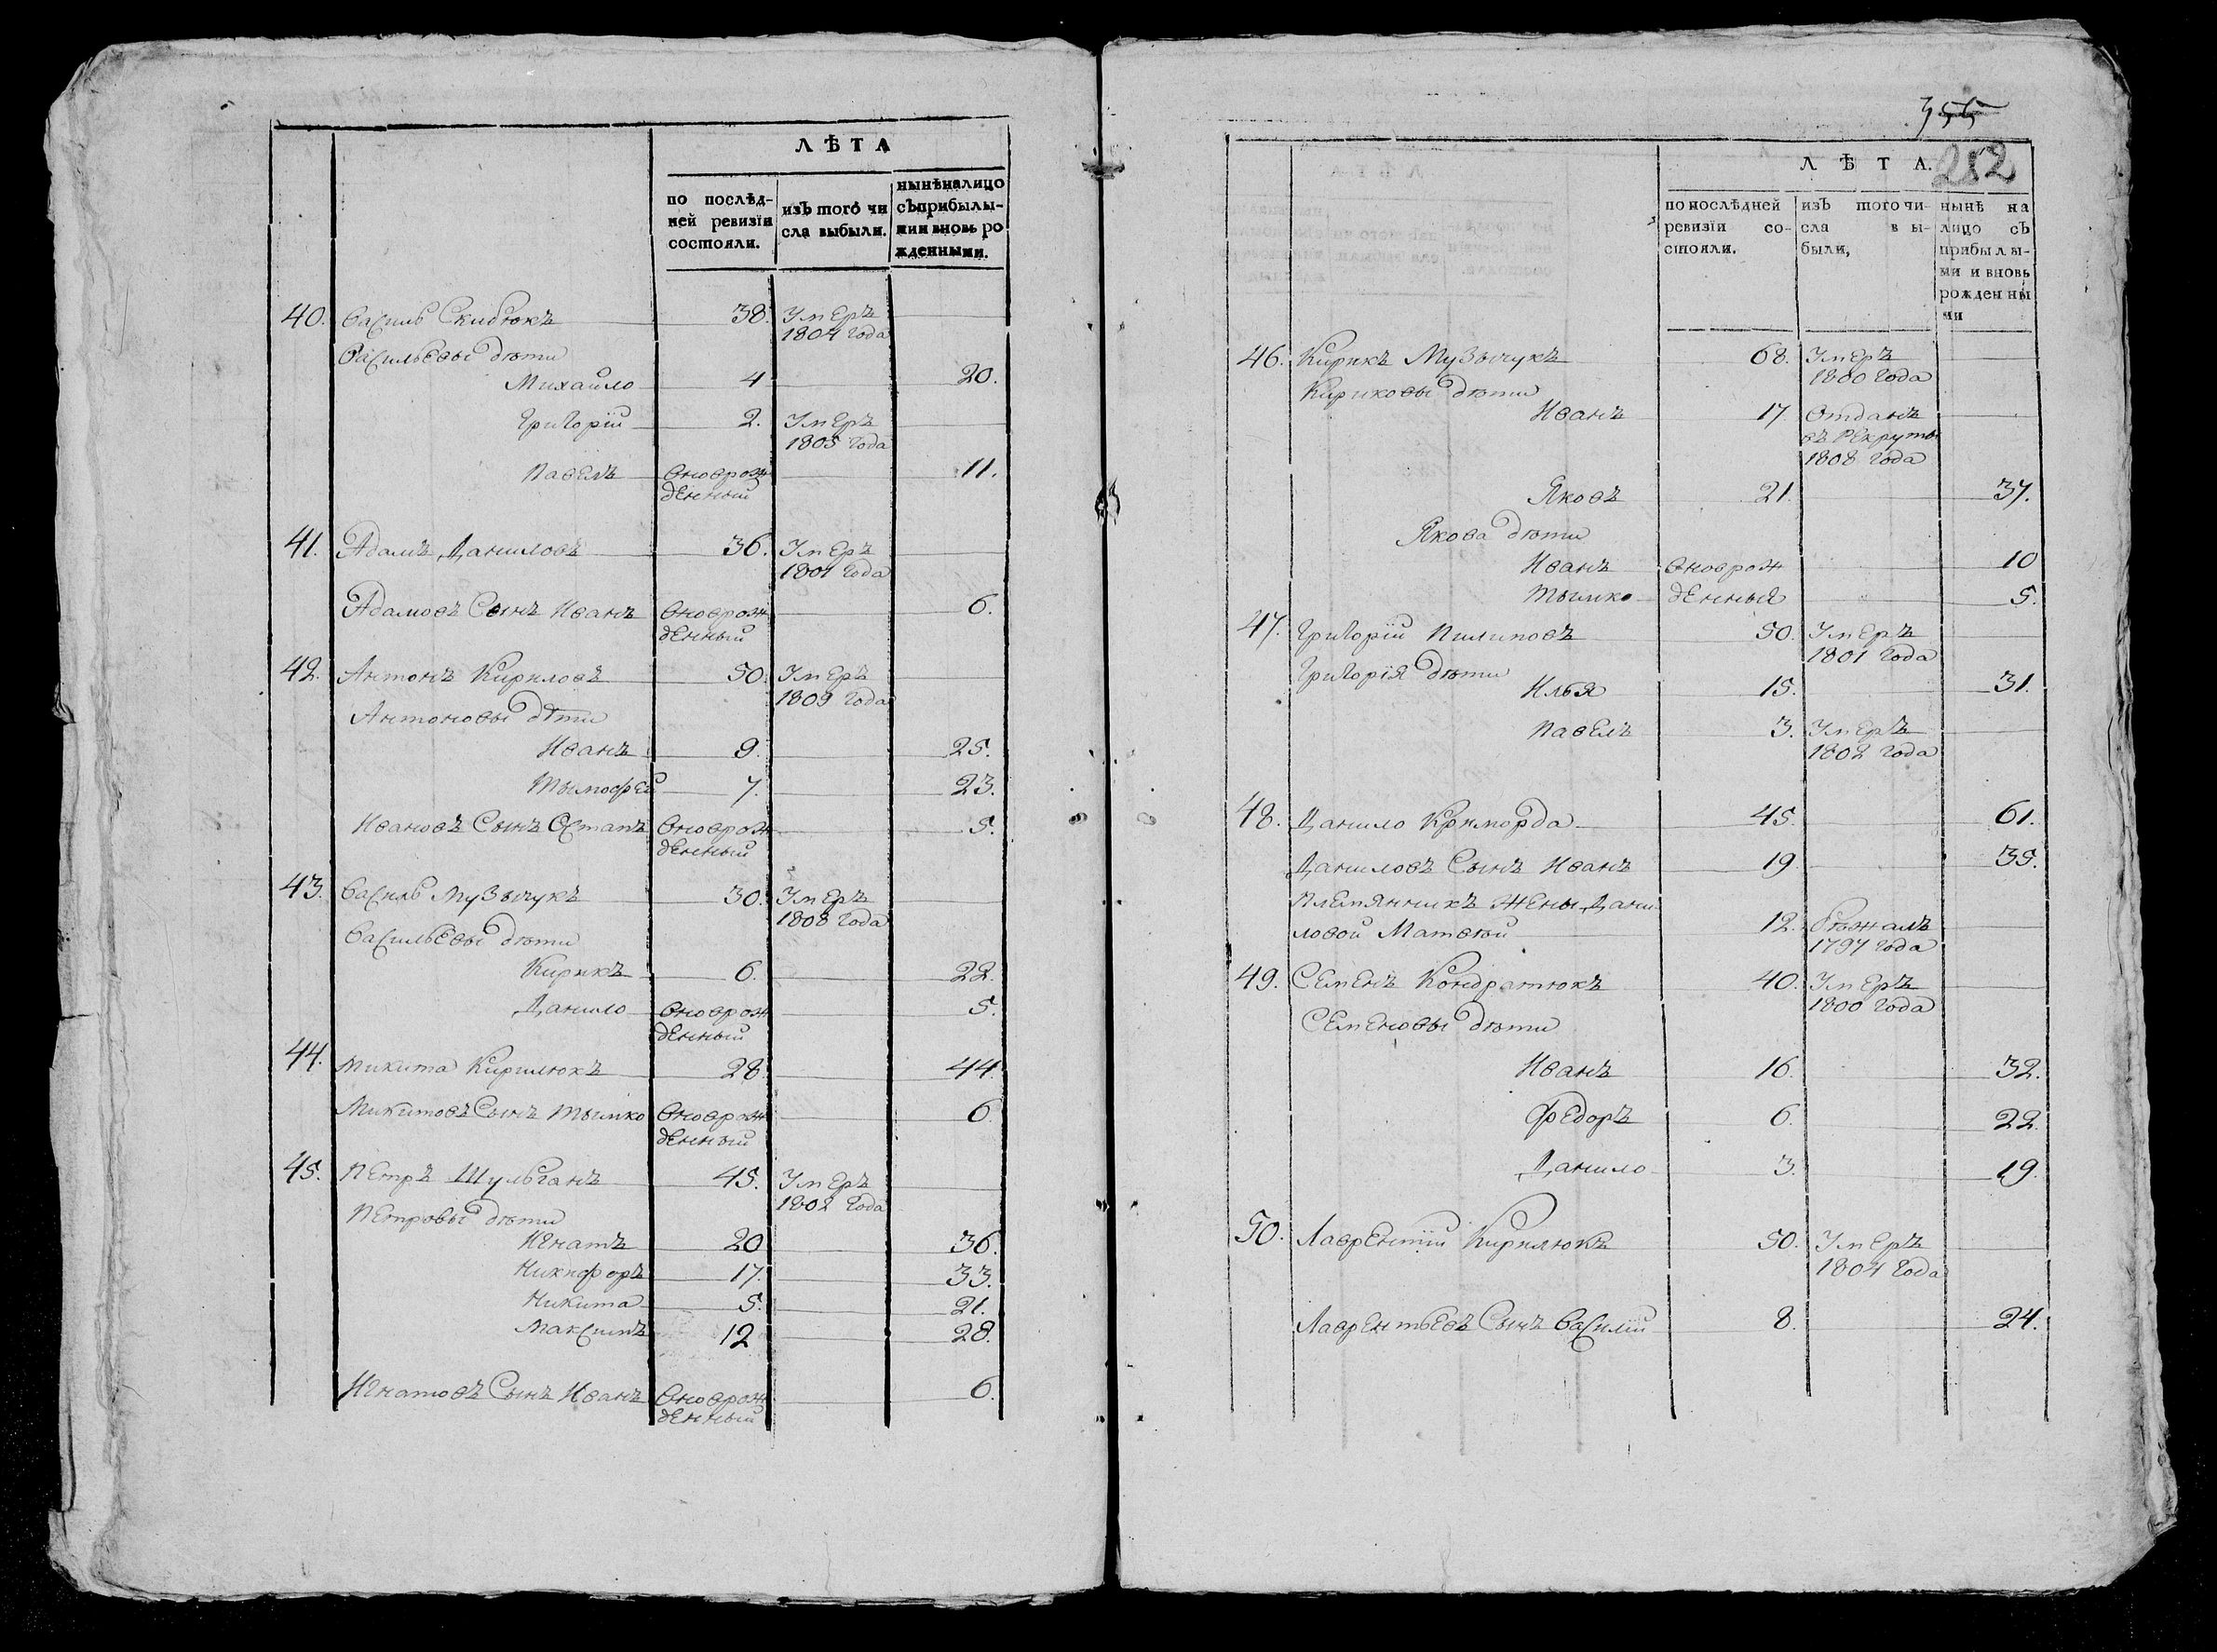 ЛѢТА
по послѣд-
ней ревизїи
состояли.
изЪ того чи
сла выбыли.
нынѣналицо
сЪприбылы-
мии вновь ро
жденными.
40. Василь Скибюкъ 38. Умеръ
1804 года
Васильевы дѣти
Михайло 4 20.
Григорій 2. Умеръ
1805 года
Павелъ вновърож 11.
денный
41. Адамъ Даниловъ 36. Умеръ
1801 года
Адамовъ Сынъ Иванъ вновърож 6.
денный
42. Антонъ Кириловъ 50. Умеръ
1809 года
Антоновы дѣти
Иванъ 9. 25.
Тымофей 7. 23.
Ивановъ Сынъ Остапъ вновърож 5.
денный
43. Василь Музычукъ 30. Умеръ
1808 года
Васильевы дѣти
Кирикъ 6. 22.
Данило вновърож 5.
денный
44. Микита Кирилюкъ 28. 44.
Микитовъ Сынъ Тымко вновърож 6
денный
45. Петръ Шульганъ 45. Умеръ
1802 года
Петровы дѣти
Игнатъ 20 36.
Никифоръ 17. 33.
Никита 5. 21.
Максимъ 12 28.
Игнатовъ Сынъ Иванъ вновърож 6.
денный
355
282
Л Ѣ Т А.
по послѣдней
ревизїи со-
стояли.
изЪ того чи-
сла вы-
были,
нынѣ на
лицо сЪ
прибылы-
ми и вновь
рожденны
ми
46. Кирикъ Музычукъ 68. Умеръ
1800 года
Кириковы дѣти
Иванъ 17 Отданъ
въ Рекруты
1808 года
Яковъ 21. 37.
Якова дѣти
Иванъ вноврож 10
Тымко денныя 5.
47. Григорій Пилиповъ 50. Умеръ
1801 года
Григорія дѣти
Илья 15. 31.
Павелъ 3. Умеръ
1802 года
48. Данило Криморда 45. 61.
Даниловъ Сынъ Иванъ 19 35.
Племянникъ Жены Дани
ловой Матвѣй 12. бѣжалъ
1797 года
49. Семенъ Кондратюкъ 40. Умеръ
1800 года
Семеновы дѣти
Иванъ 16. 32.
Федоръ 6. 22.
Данило 3. 19.
50. Лаврентій Кирилюкъ 50. Умеръ
1804 года
Лаврентьевъ Сынъ Василій 8. 24.